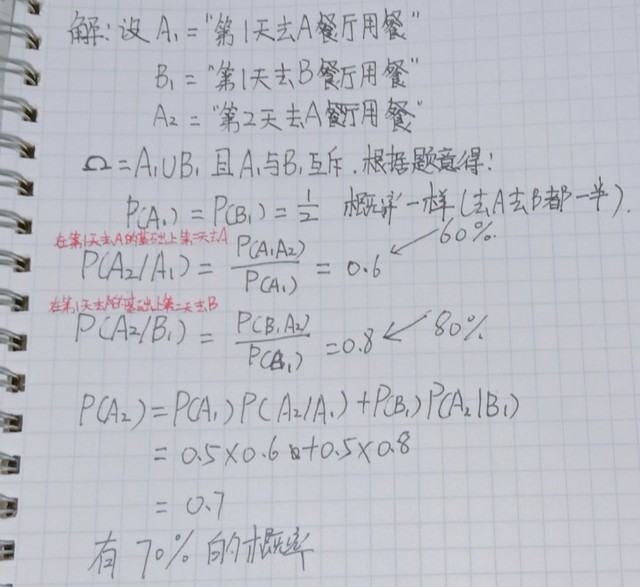 解:设 A₁="第1天去A餐厅用餐"
B₁="第1天去B餐厅用餐"
A₂="第2天去A餐厅用餐"
Ω=A₁∪B₁ 且A₁与B₁互斥.根据题意得:
P(A₁)=P(B₁)=1/2 概率一样(去A去B都一半).
在第1天去A的基础上第二天去A
P(A₂/A₁)=P(A₁A₂)/P(A₁)=0.6 ↙60%.
在第1天去A的基础上第二天去B
P(A₂/B₁)=P(B₁A₂)/P(B₁)=0.8 ↙80%
P(A₂)=P(A₁)P(A₂/A₁)+P(B₁)P(A₂|B₁)
=0.5×0.6+0.5×0.8
=0.7
有70%的概率